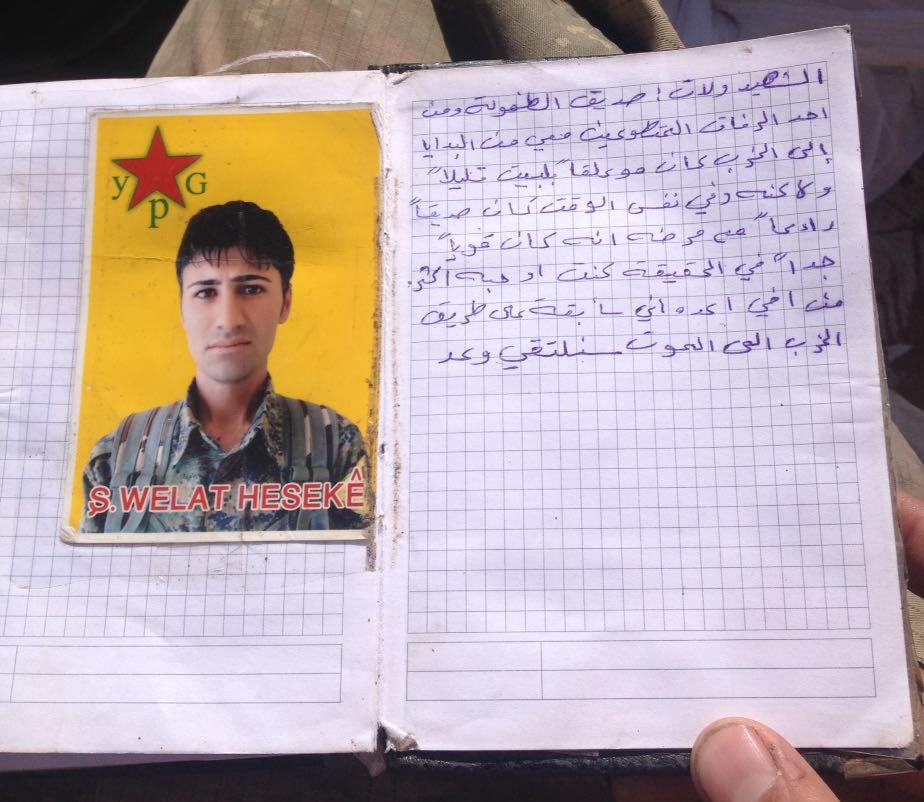 YPG
Ş.WELAT HESEKÊ
الشهيد ولات: صديق الطفولة ومن
احد الرفاق المتطوعين معي من البدايا
إلى الحزب كان موعلقاً لبيت قليلاً
ولاكنه وفي نفس الوقت كان صديقاً
رادعاً مع مرضه انه كان قوياً
جداً في الحقيقة كنت اوحبه أكثر
من اخي سأبقة على طريق
الحزب الى الموت سنلتقي وعد